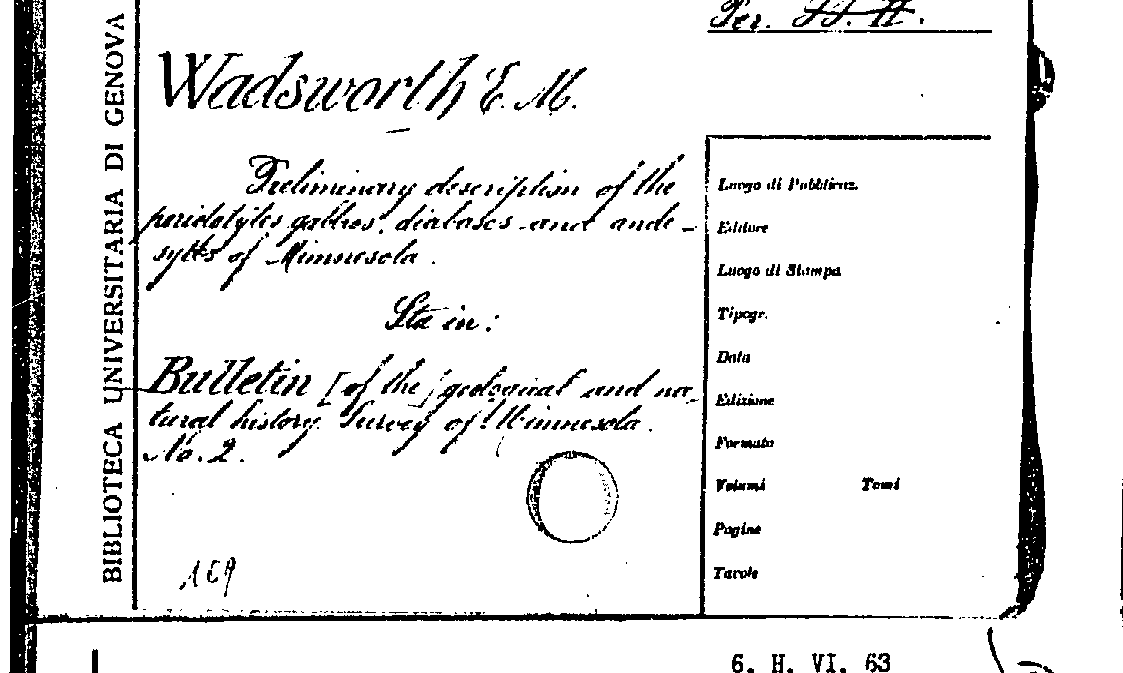 Per.
Wadsworth E. M.
Preliminary description of the
peridotytes gabbros, diabases and ande-
sytes of Minnesota.
Sta in:
Bulletin [of the] geological and na-
tural history Survey of Minnesota.
No. 2.
169
BIBLIOTECA UNIVERSITARIA DI GENOVA
Luogo di Pubblicaz.
Editore
Luogo di Stampa
Tipogr.
Data
Edizione
Formato
Volumi Tomi
Pagine
Tavole
6. H. VI. 63